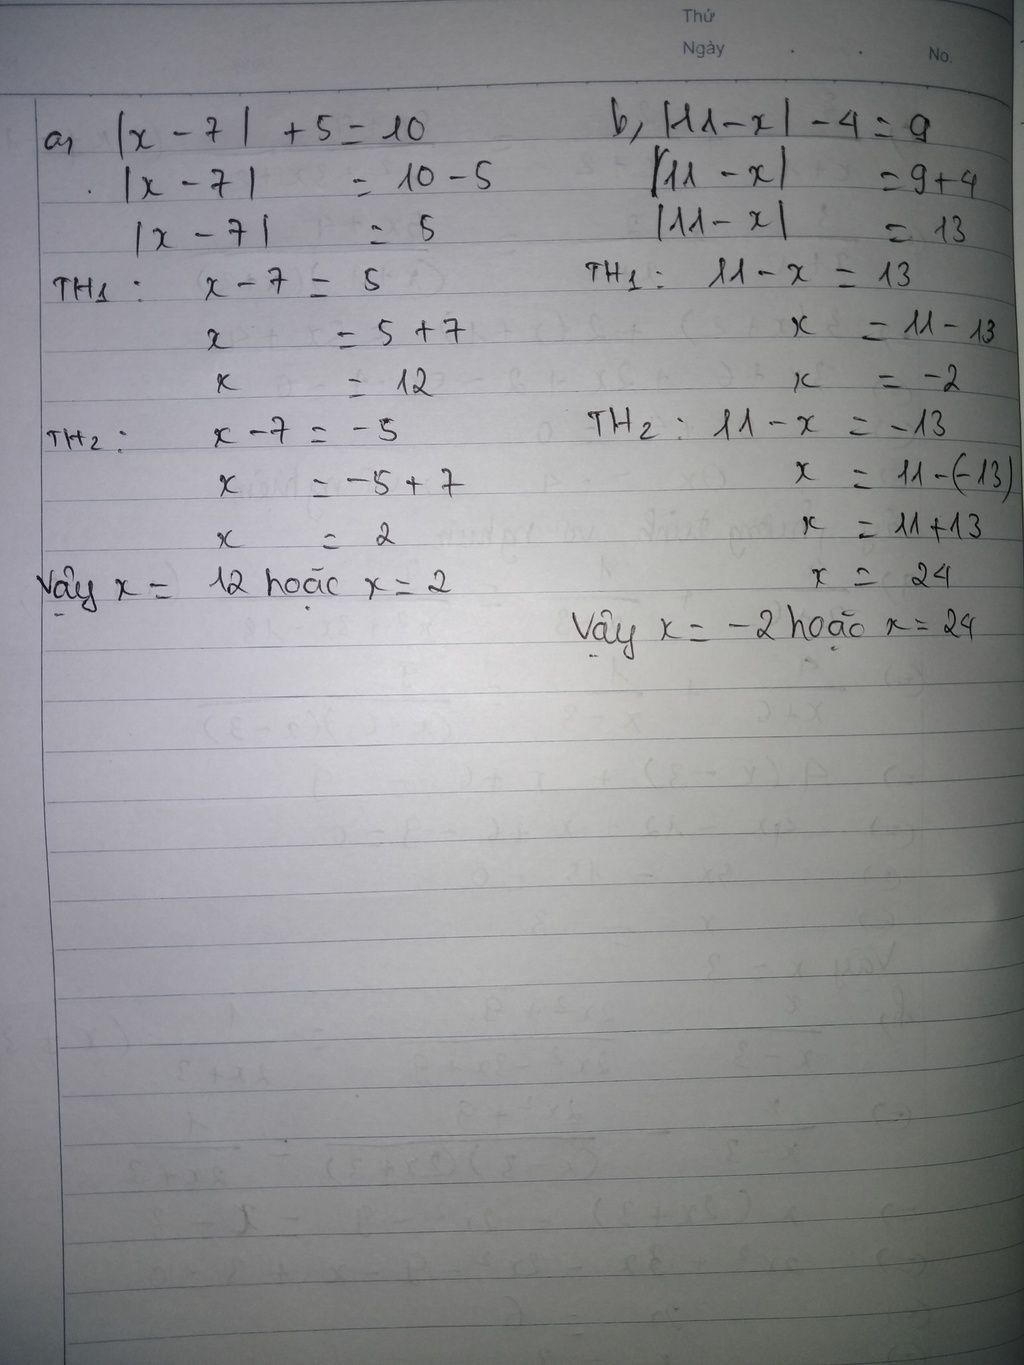 Thứ
Ngày . . No.
a, |x - 7| + 5 = 10
|x - 7| = 10 - 5
|x - 7| = 5
TH1 : x - 7 = 5
x = 5 + 7
x = 12
TH2 : x - 7 = -5
x = -5 + 7
x = 2
Vậy x = 12 hoặc x = 2
b, |11 - x| - 4 = 9
|11 - x| = 9 + 4
|11 - x| = 13
TH1 : 11 - x = 13
x = 11 - 13
x = -2
TH2 : 11 - x = -13
x = 11 - (-13)
x = 11 + 13
x = 24
Vậy x = -2 hoặc x = 24